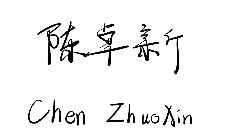 陈卓新
Chen ZhuoXin